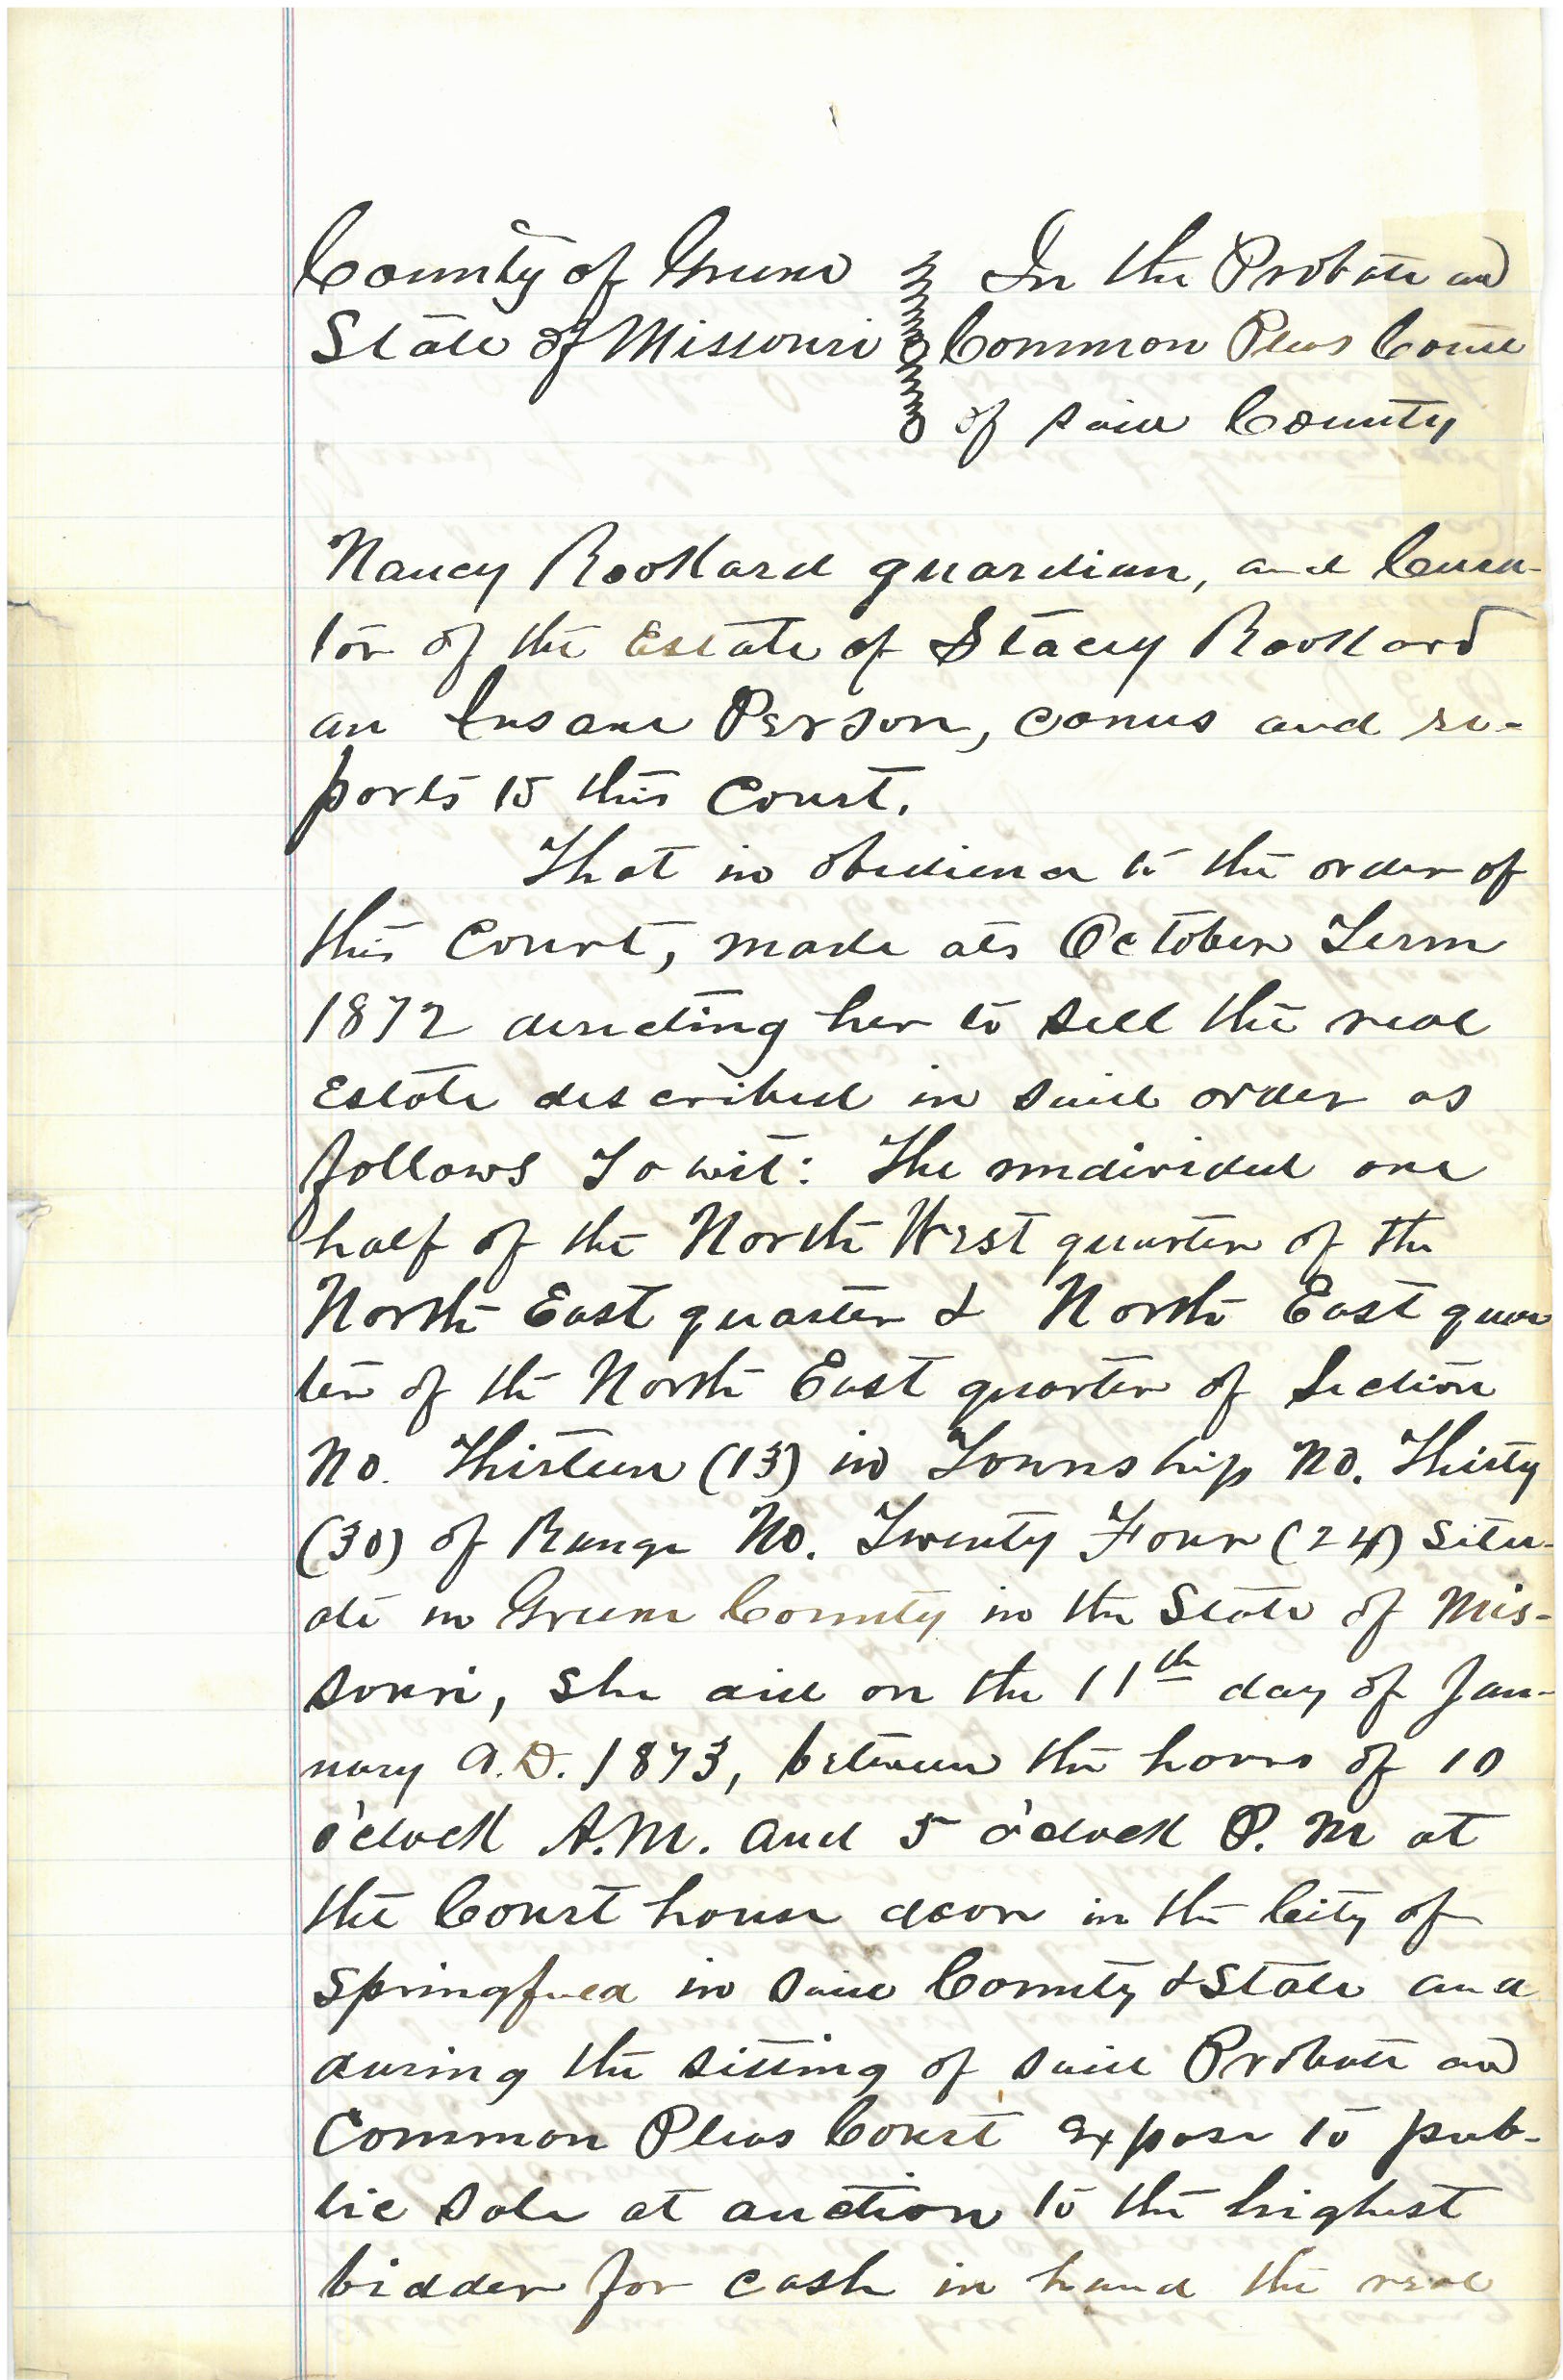 County of Greene In the Probate and
State of Missouri Common Pleas Court
of said County
Nancy Rookard guardian, and Cura-
tor of the Estate of Stacey Rookard
an Insane Person, comes and re-
ports to this Court.
That in obedience to the order of
this Court, made at its October Term
1872 directing her to sell the real
Estate described in said order as
follows To wit: The undivided one
half of the North West quarter of the
North East quarter & North East quar
ter of the North East quarter of Section
No. Thirteen (13) in Township No. Thirty
(30) of Range No. Twenty Four (24) Situ-
ate in Greene County in the State of Mis-
souri, She did on the 11th day of Jan-
uary A.D. 1873, between the hours of 10
o'clock A.M. and 5 o'clock P. M at
the Court house door in the City of
Springfield in said County & State and
during the sitting of said Probate and
Common Pleas Court expose to pub-
lic Sale at auction to the highest
bidder for cash in hand the real